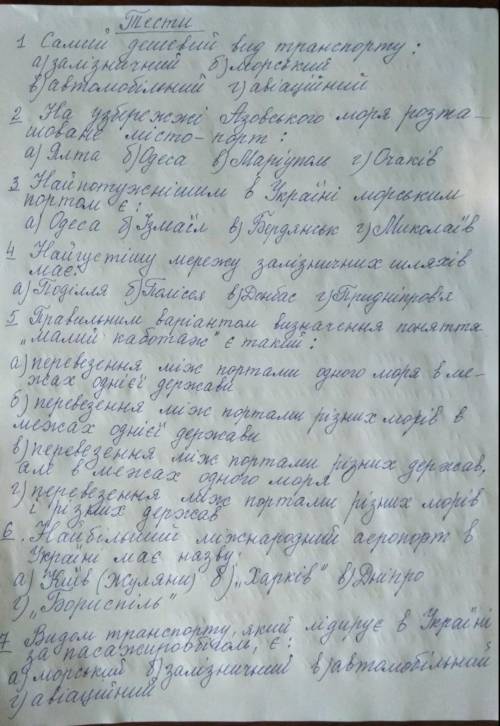 Тести
1 Самий дешевий вид транспорту:
а) залізничний б) морський
в) автомобільний г) авіаційний
2 На узбережжі Азовського моря розта-
шоване місто-порт:
а) Ялта б) Одеса в) Маріуполь г) Очаків
3 Найпотужнішим в Україні морським
портом є:
а) Одеса б) Ізмаїл в) Бердянськ г) Миколаїв
4 Найгустішу мережу залізничних шляхів
має:
а) Поділля б) Полісся в) Донбас г) Придніпров'я
5 Правильним варіантом визначення поняття
"малий каботаж" є такий:
а) перевезення між портами одного моря в ме-
жах однієї держави
б) перевезення між портами різних морів в
межах однієї держави
в) перевезення між портами різних держав,
але в межах одного моря
г) перевезення між портами різних морів
і різних держав
6. Найбільший міжнародний аеропорт в
Україні має назву:
а) Київ (Жуляни) б) "Харків" в) Дніпро
г) "Бориспіль"
7 Видом транспорту, який лідирує в Україні
за пасажирообігом, є:
а) морський б) залізничний в) автомобільний
г) авіаційний